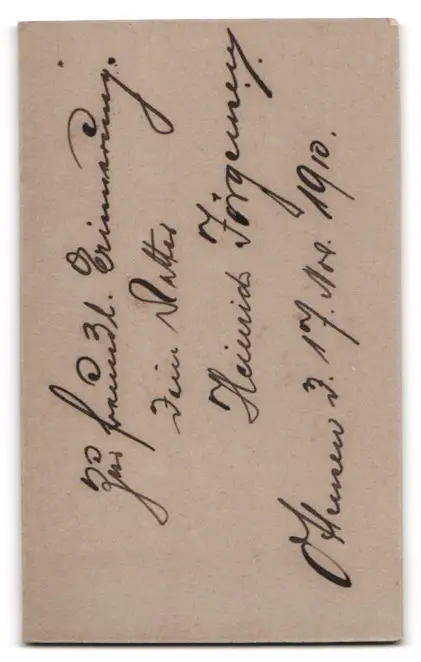 Zur freundl. Erinnerung.
Dein Vetter
Heinrich Jörgensen.
Ottensen d. 17. Nov. 1910.